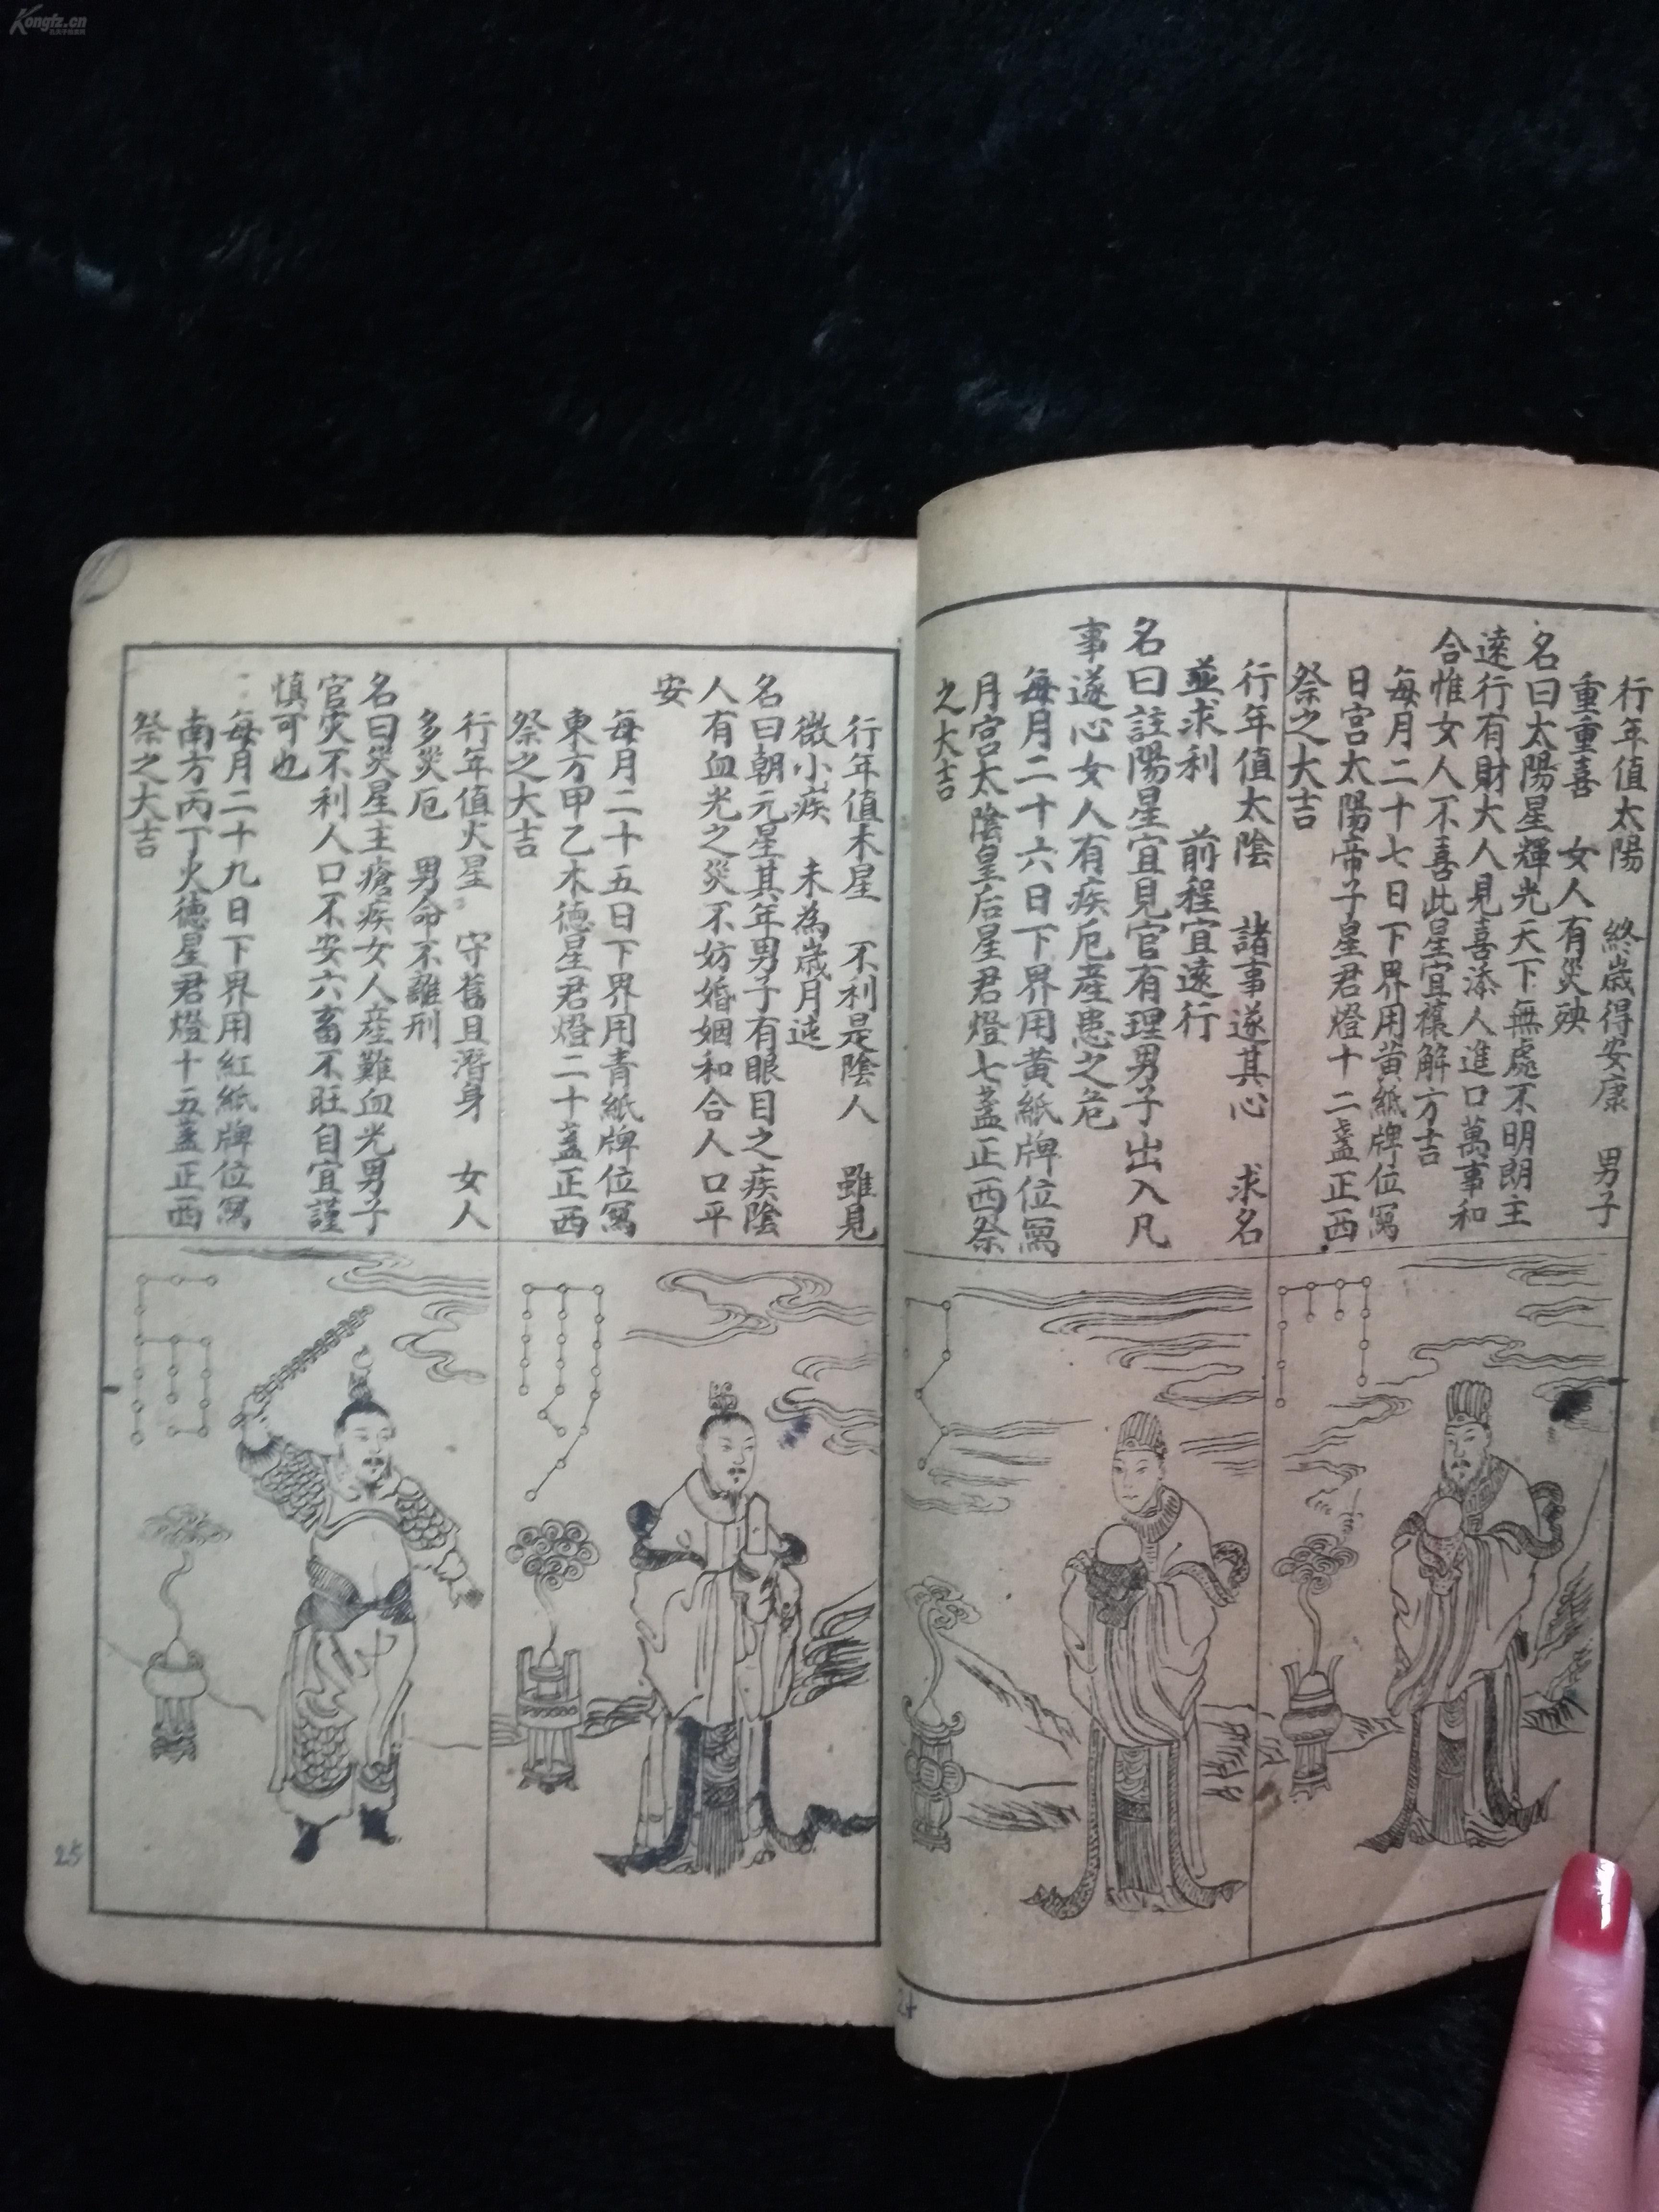 Kongfz.cn
行年值太陽 終歲得安康 男子
重重喜 女人有災殃
名曰太陽星輝光天下無處不明朗主
遠行有財大人見喜添人進口萬事和
合惟女人不喜此星宜禳解方吉
每月二十七日下界用黃紙牌位寫
日宮太陽帝子星君燈十二盞正西
祭之大吉
行年值太陰 諸事遂其心 求名
並求利 前程宜遠行
名曰註陽星宜見官有理男子出入凡
事遂心女人有疾厄產患之危
每月二十六日下界用黃紙牌位寫
月宮太陰皇后星君燈七盞正西祭
之大吉
24
行年值木星 不利是陰人 雖見
微小疾 未為歲月迍
名曰朝元星其年男子有眼目之疾陰
人有血光之災不妨婚姻和合人口平
安
每月二十五日下界用青紙牌位寫
東方甲乙木德星君燈二十盞正西
祭之大吉
行年值火星 守舊且潛身 女人
多災厄 男命不離刑
名曰災星主瘡疾女人產難血光男子
官灾不利人口不安六畜不旺自宜謹
慎可也
每月二十九日下界用紅紙牌位寫
南方丙丁火德星君燈十五盞正西
祭之大吉
25